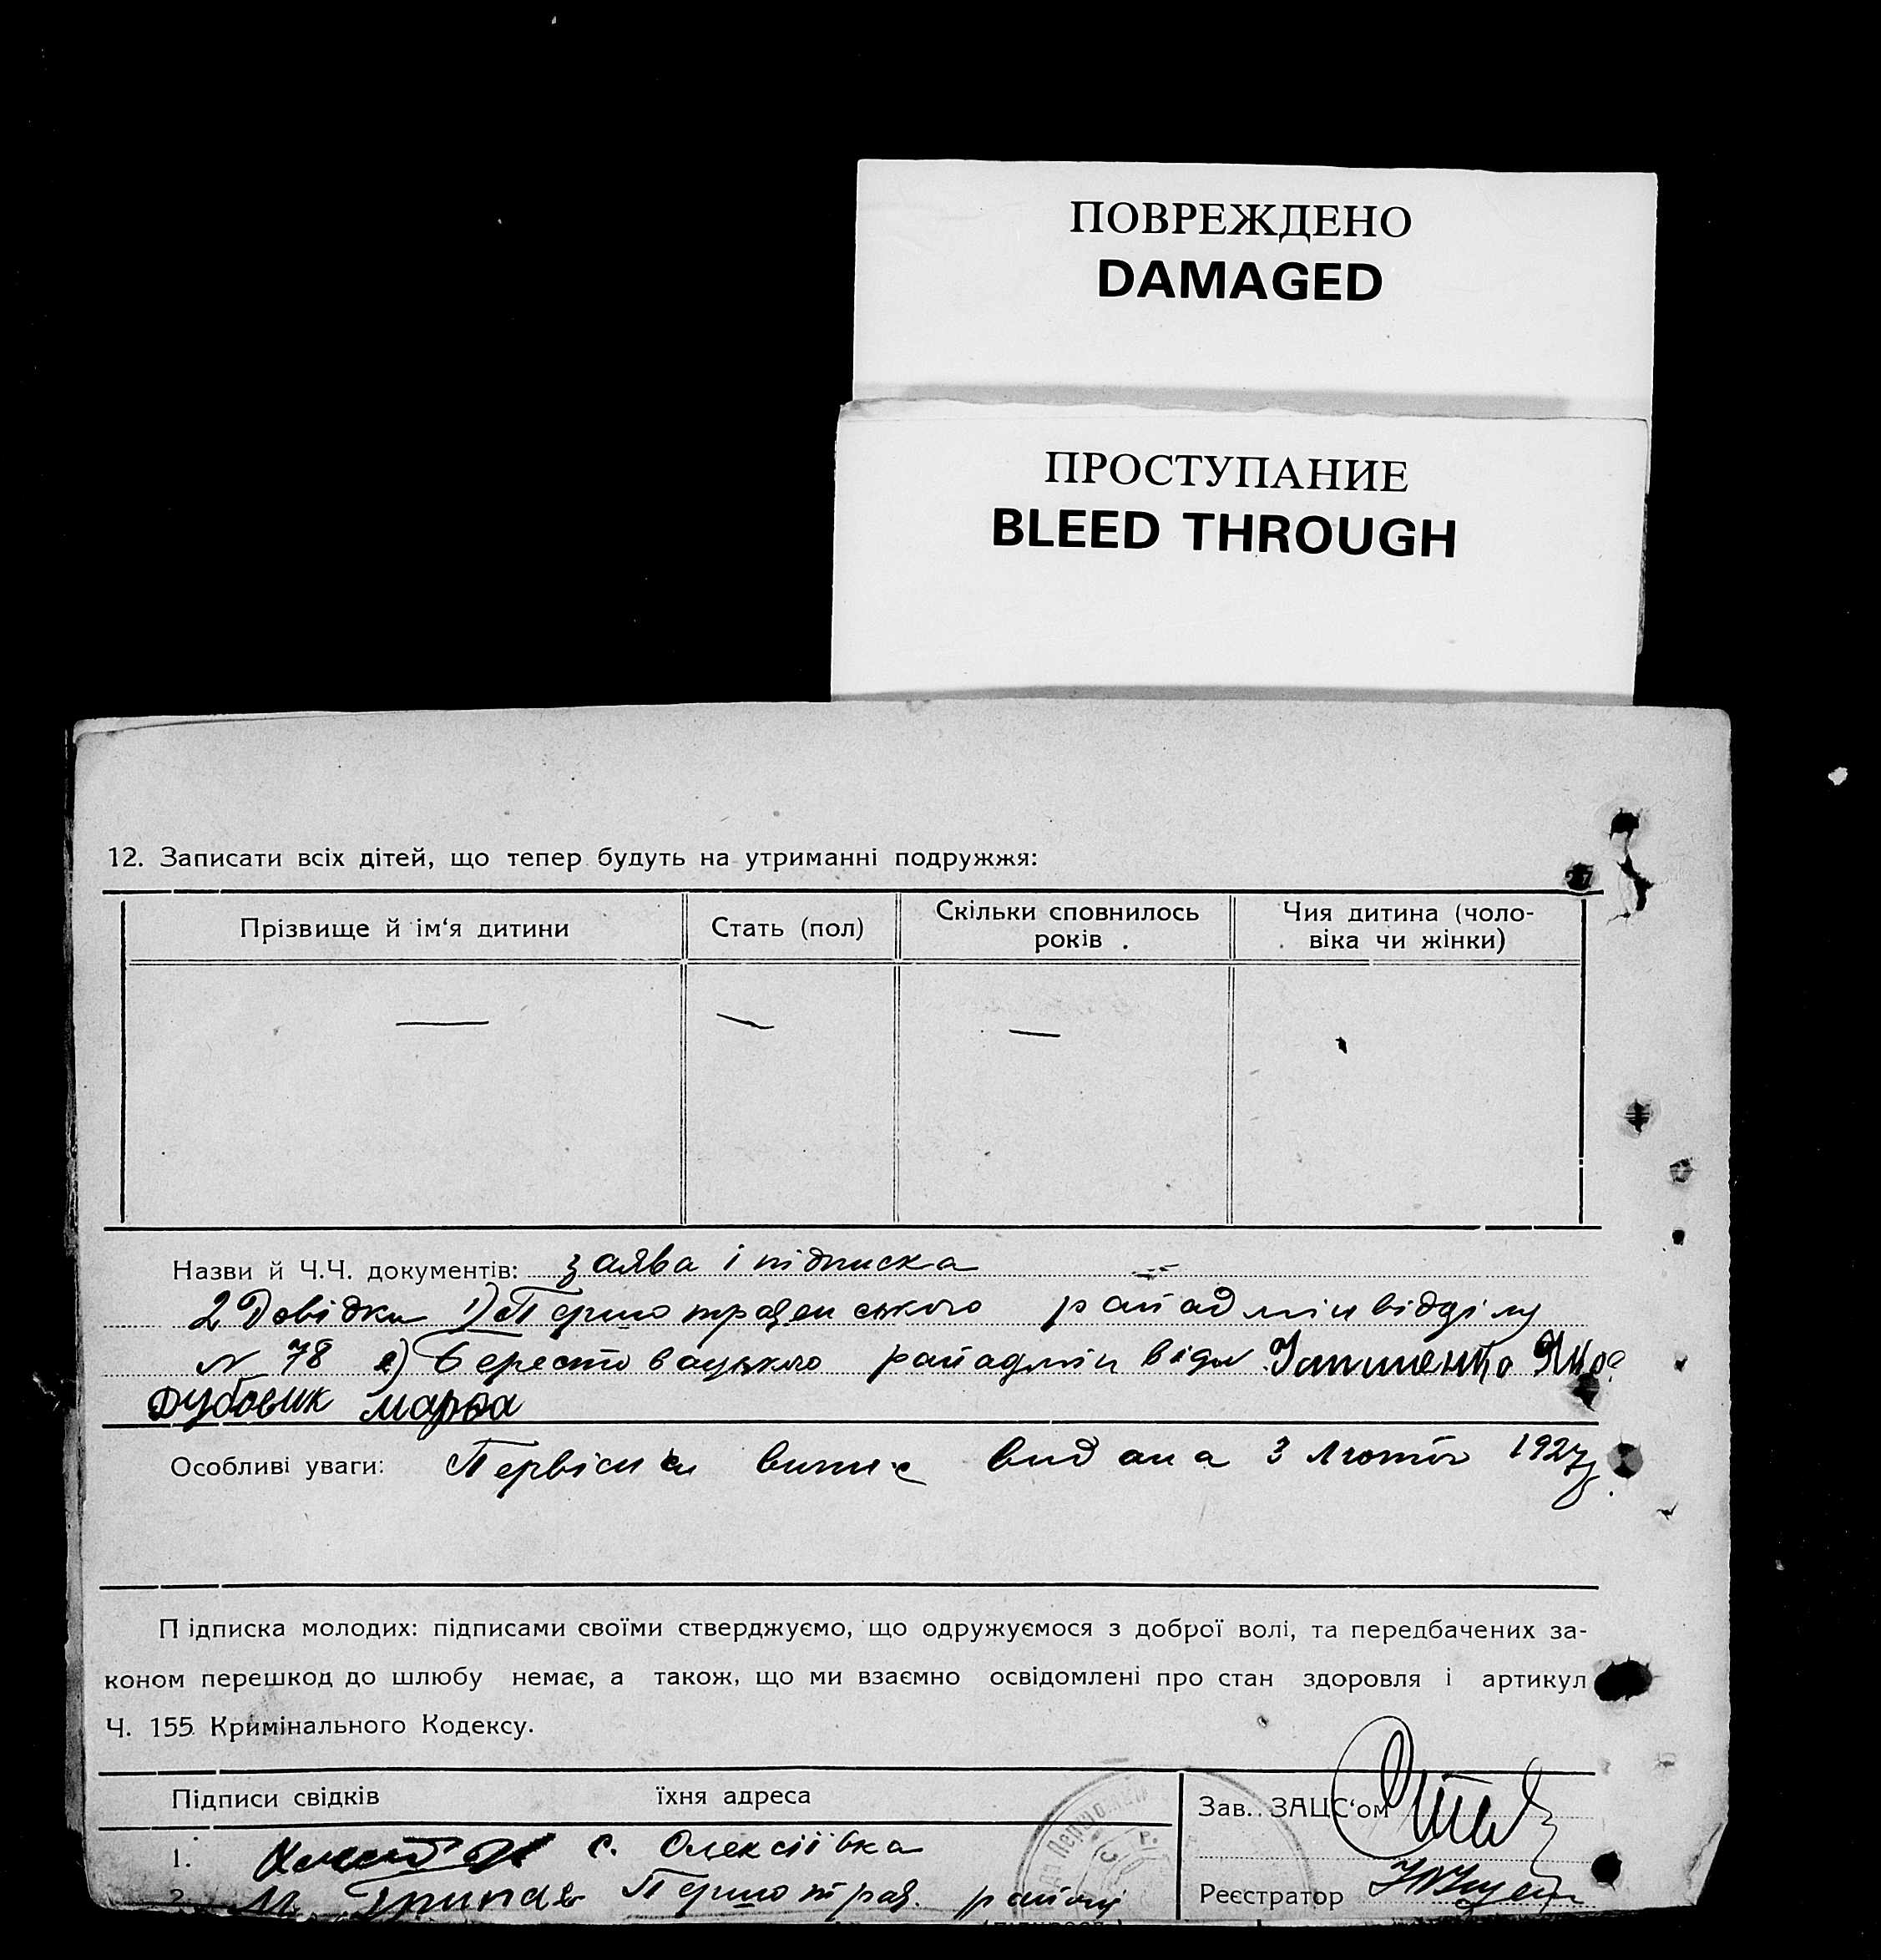 ПОВРЕЖДЕНО
DAMAGED
ПРОСТУПАНИЕ
BLEED THROUGH
12. Записати всіх дітей, що тепер будуть на утриманні подружжя:
Прізвище й ім'я дитини
Стать (пол)
Скільки сповнилось
років
Чия дитина (чоло-
віка чи жінки)
Назви й Ч.Ч. документів: заява і підписка
2 Довідки 1) Першотравенського райадмінвідділу
N 78 2) Берестовацького райадмінвідділ
Дубовик Марфа
Особливі уваги: видана 3 лютого 1927 р.
Підписка молодих: підписами своїми стверджуємо, що одружуємося з доброї волі, та передбачених за-
коном перешкод до шлюбу немає, а також, що ми взаємно освідомлені про стан здоровля і артикул
Ч. 155 Кримінального Кодексу.
Підписи свідків
їхня адреса
Зав. ЗАЦС'ом
1. с. Олексіївка
2. М. Першотрав. району
Реєстратор